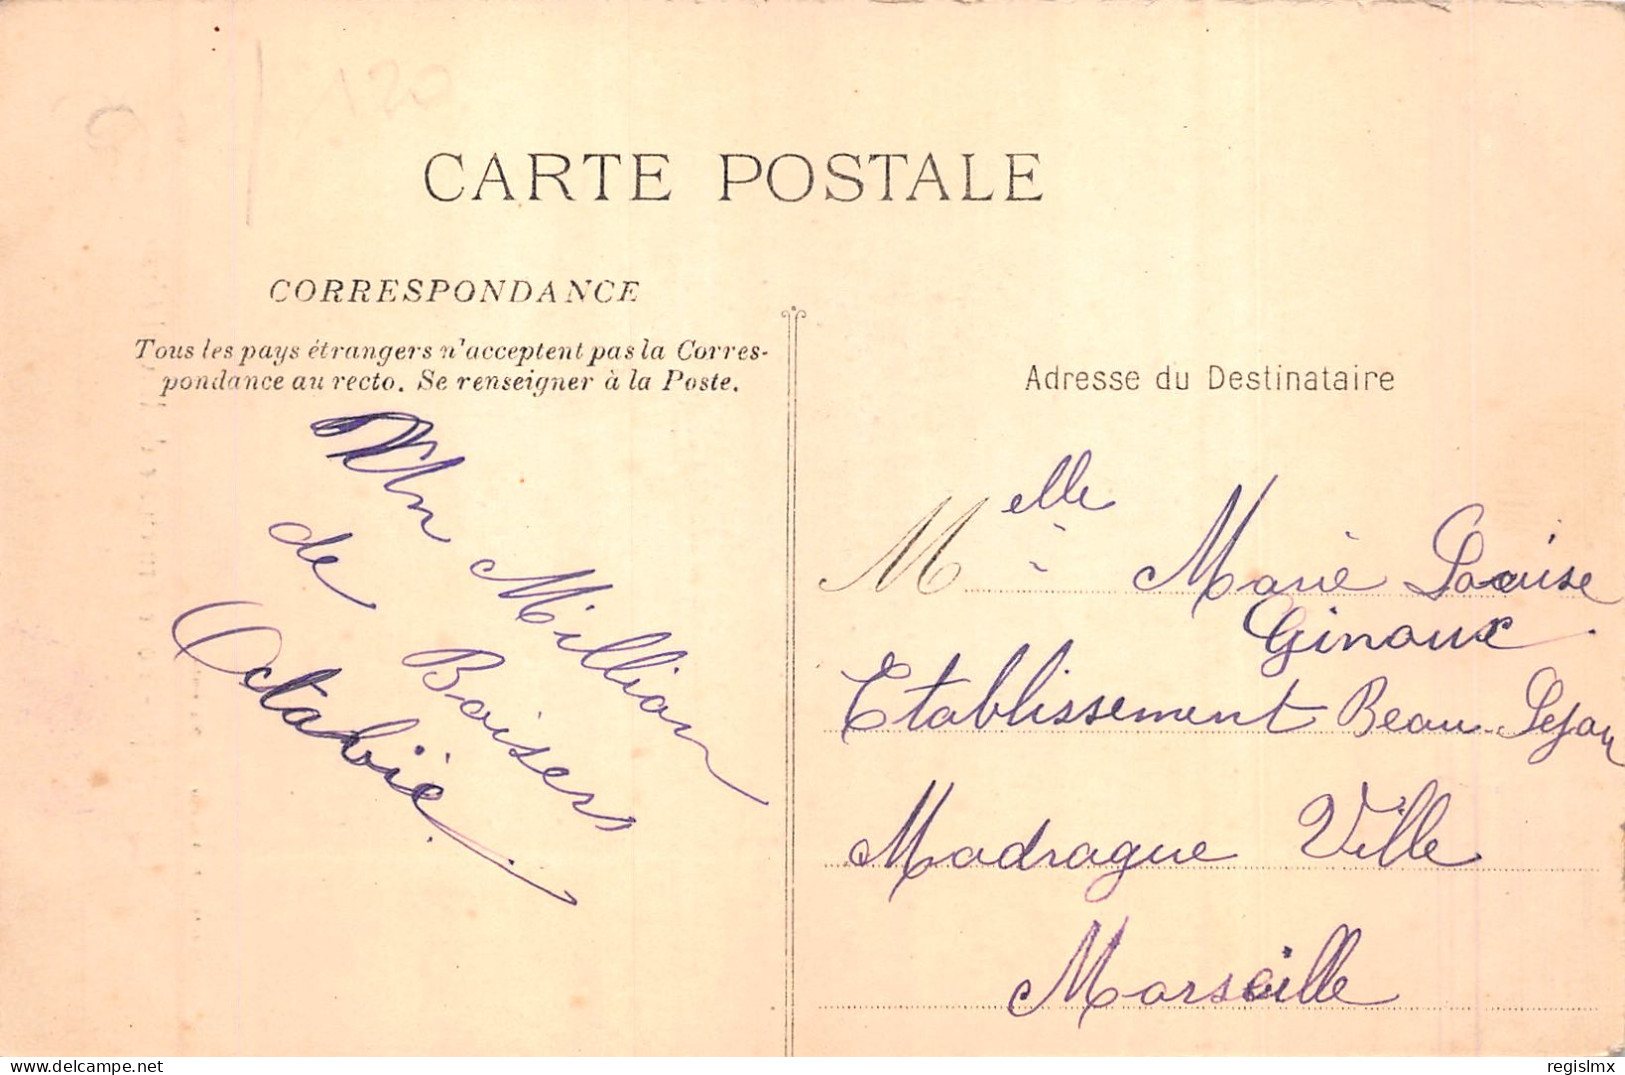 120
CARTE POSTALE
CORRESPONDANCE
Tous les pays étrangers n'acceptent pas la Corres-
pondance au recto. Se renseigner à la Poste.
Un Million
de Baisers
Octabie.
Adresse du Destinataire
Melle Marie Louise
Ginoux.
Etablissement Beau Sejour
Madrague Ville
Marseille
delcampe.net
regislmx